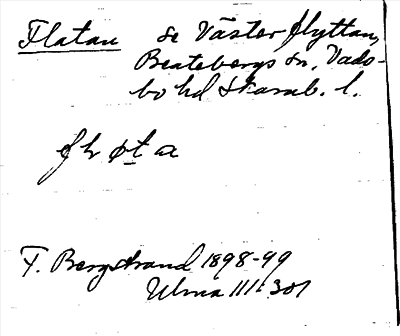 Flatan se Väster flyttan,
Beatebergs sn, Vads-
bo hd Skarab. l.
T. Bergstrand 1898-99
Ulma 111:301